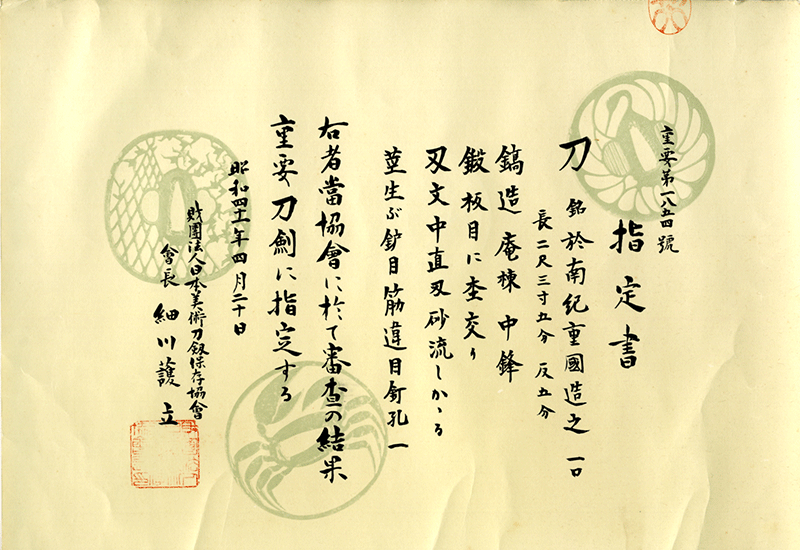 重要第一八五四號
指定書
刀 銘 於南紀重國造之 一口
長二尺三寸五分 反五分
鎬造 庵棟 中鋒
鍛 板目に杢交り
刃文 中直刃 砂流しかゝる
茎 生ぶ 鈩目筋違 目釘孔一
右者當協會に於て審査の結果
重要刀劍に指定する
昭和四十一年四月二十日
財團法人日本美術刀劔保存協會
會長 細川護立